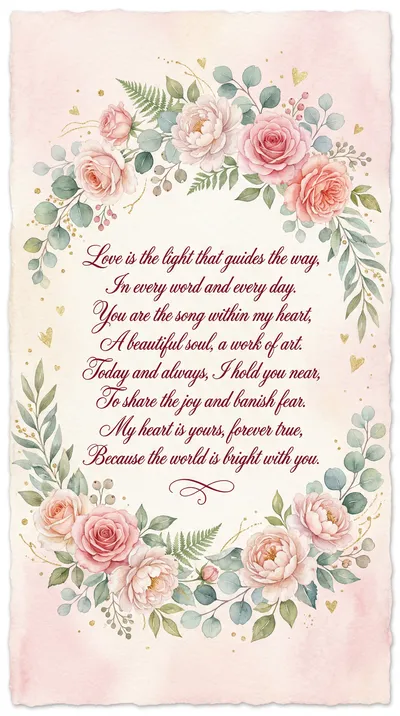 Love is the light that guides the way,
In every word and every day.
You are the song within my heart,
A beautiful soul, a work of art.
Today and always, I hold you near,
To share the joy and banish fear.
My heart is yours, forever true,
Because the world is bright with you.